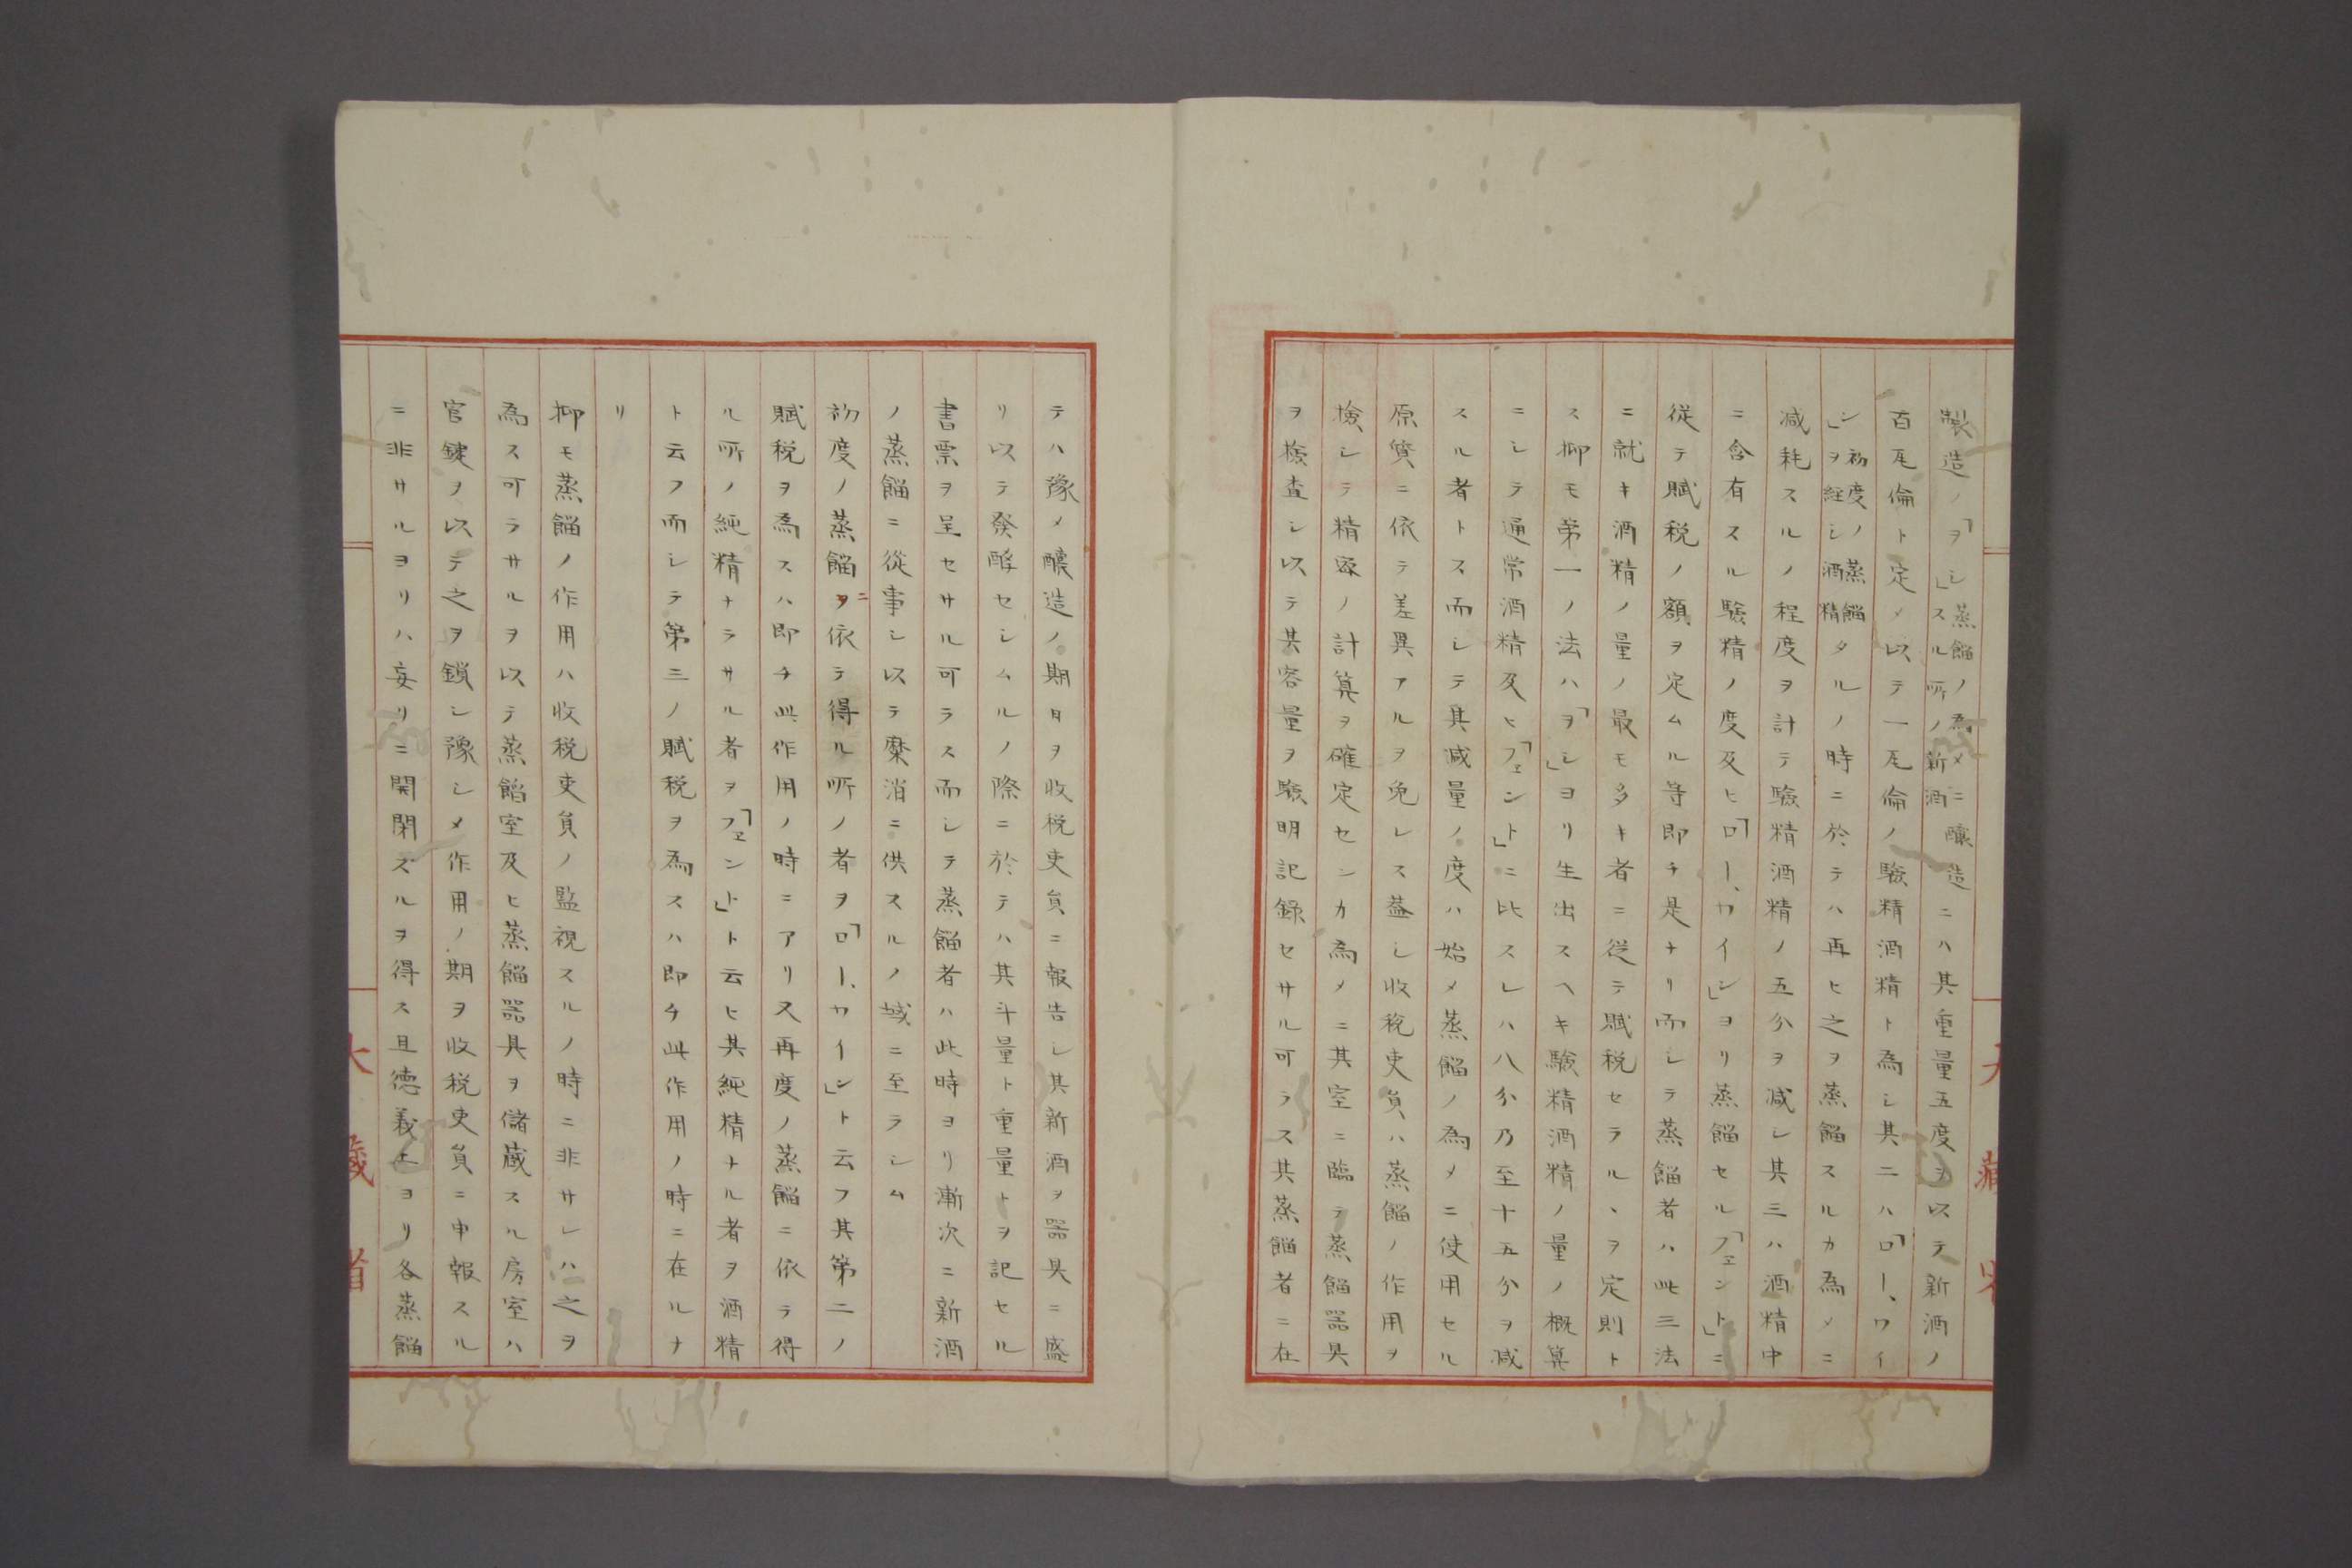 製造ノ「ヲシ」蒸餾ノ為メニ醸造スル所ノ新酒ニハ其重量五度ヲ以テ新酒ノ
百瓦倫ト定メ以テ一瓦倫ノ驗精酒精ト為シ其二ハ「ロー、ワイ
ン」初度ノ蒸餾ヲ経シ酒精タルノ時ニ於テハ再ヒ之ヲ蒸餾スルカ為メニ
減耗スルノ程度ヲ計テ驗精酒精ノ五分ヲ減シ其三ハ酒精中
ニ含有スル驗精ノ度及ヒ「ロー、ワイン」ヨリ蒸餾セル「フェント」ニ
従テ賦税ノ額ヲ定ムル等即チ是ナリ而シテ蒸餾者ハ此三法
ニ就キ酒精ノ量ノ最モ多キ者ニ従テ賦税セラル、ヲ定則ト
ス抑モ第一ノ法ハ「ヲシ」ヨリ生出スヘキ驗精酒精ノ量ノ概算
ニシテ通常酒精及ヒ「フェント」ニ比スレハ八分乃至十五分ヲ減
スル者トス而シテ其減量ノ度ハ始メ蒸餾ノ為メニ使用セル
原質ニ依テ差異アルヲ免レス葢シ收税吏員ハ蒸餾ノ作用ヲ
檢シテ精密ノ計算ヲ確定センカ為メニ其室ニ臨テ蒸餾器具
ヲ檢査シ以テ其容量ヲ驗明記録セサル可ラス其蒸餾者ニ在
テハ豫メ醸造ノ期日ヲ收税吏員ニ報告シ其新酒ヲ器具ニ盛
リ以テ發酵セシムルノ際ニ於テハ其斗量ト重量トヲ記セル
書票ヲ呈セサル可ラス而シテ蒸餾者ハ此時ヨリ漸次ニ新酒
ノ蒸餾ニ從事シ以テ糜消ニ供スルノ域ニ至ラシム
初度ノ蒸餾ヲニ依テ得ル所ノ者ヲ「ロー、ワイン」ト云フ其第二ノ
賦税ヲ為スハ即チ此作用ノ時ニアリ又再度ノ蒸餾ニ依テ得
ル所ノ純精ナラサル者ヲ「フェント」ト云ヒ其純精ナル者ヲ酒精
ト云フ而シテ第三ノ賦税ヲ為スハ即チ此作用ノ時ニ在ルナ
リ
抑モ蒸餾ノ作用ハ收税吏員ノ監視スルノ時ニ非サレハ之ヲ
為ス可ラサルヲ以テ蒸餾室及ヒ蒸餾器具ヲ儲蔵スル房室ハ
官鍵ヲ以テ之ヲ鎖シ豫シメ作用ノ期ヲ收税吏員ニ申報スル
ニ非サルヨリハ妄リニ開閉ズルヲ得ス且徳義上ヨリ各蒸餾
大藏省